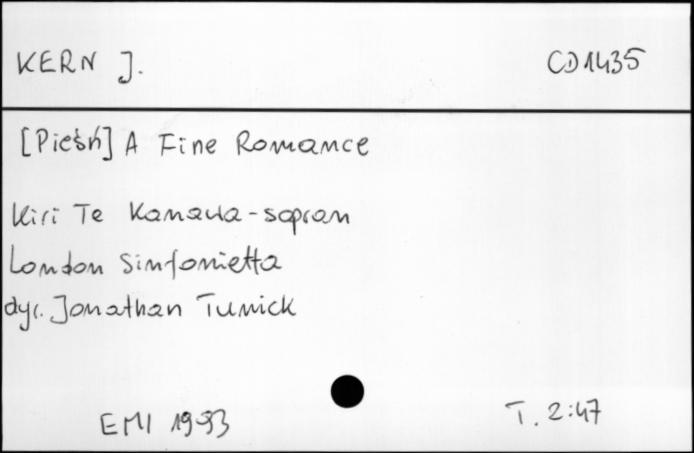 KERN J. CD1435
[Pieśń] A Fine Romance
Kiri Te Kanawa - sopran
London Sinfonietta
dyr. Jonathan Tunick
EMI 1993 T. 2:47